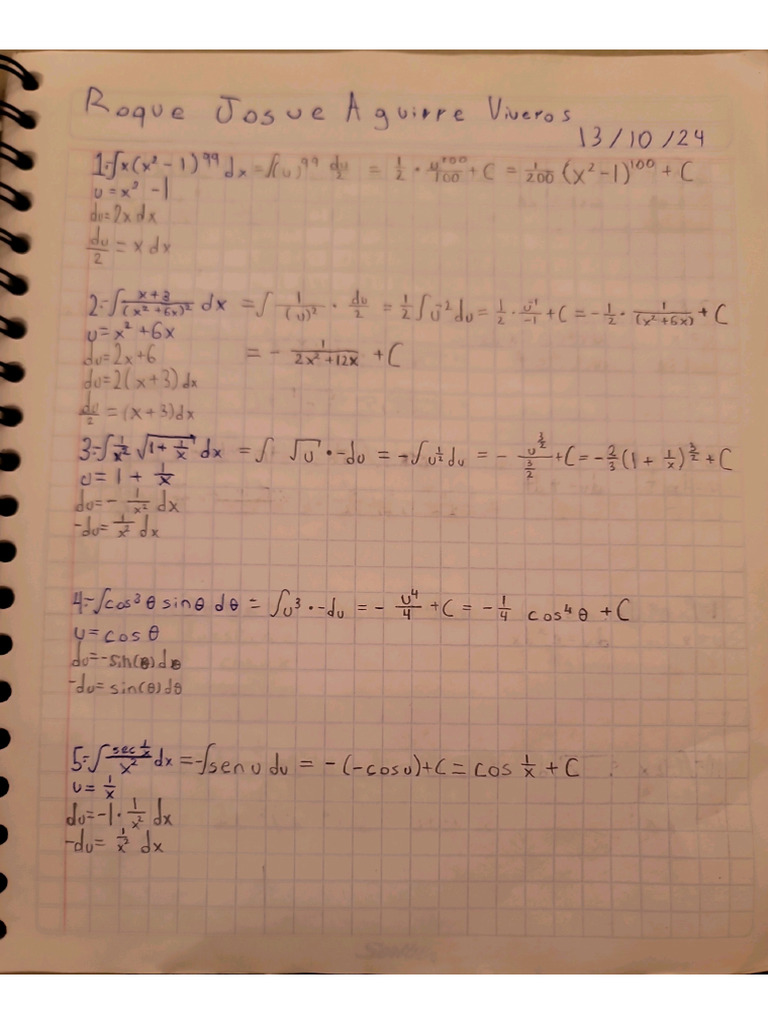 Roque Josue Aguirre Viveros
13/10/24
1.-∫x(x²-1)⁹⁹dx=∫(u)⁹⁹ du/2 = 1/2 · u¹⁰⁰/100 + C = 1/200 (x²-1)¹⁰⁰ + C
u=x² -1
du=2x dx
du/2 = x dx
2.-∫ x+3/(x²+6x)² dx = ∫ 1/(u)² · du/2 = 1/2 ∫u⁻²du = 1/2 · u⁻¹/-1 + C = -1/2 · 1/(x²+6x) + C
u=x²+6x
du=2x+6
= - 1/2x²+12x + C
du=2(x+3)dx
du/2 = (x+3)dx
3.-∫1/x² √1+1/x dx = ∫ √u · -du = -∫u^1/2 du = - u^3/2 / 3/2 + C = -2/3 (1 + 1/x)^3/2 + C
u = 1 + 1/x
du= - 1/x² dx
-du= 1/x² dx
4.-∫cos³θ sinθ dθ = ∫u³ · -du = - u⁴/4 + C = - 1/4 cos⁴θ + C
u=cosθ
du=-sin(θ)dθ
-du= sin(θ)dθ
5.-∫ sec 1/x / x² dx = -∫sen u du = -(-cosu)+C = cos 1/x + C
u= 1/x
du=-1· 1/x² dx
-du= 1/x² dx